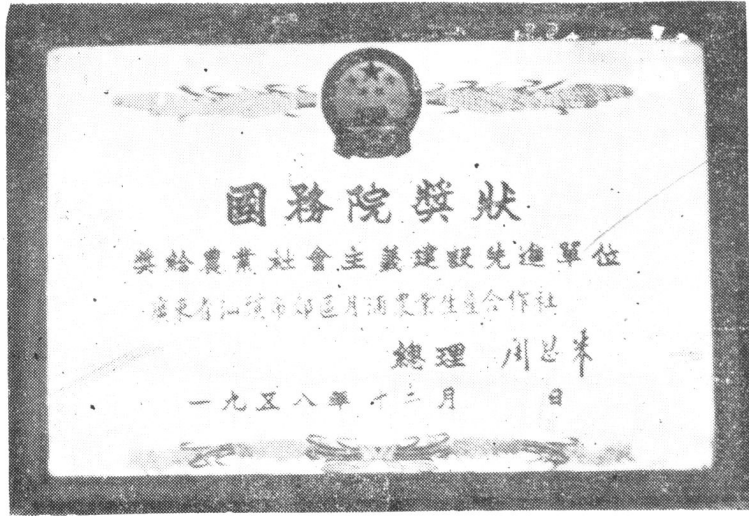 國務院獎狀
獎給農業社會主義建設先進單位
广东省汕頭市郊區月浦农業生產合作社
總理 周恩来
一九五八年十二月 日